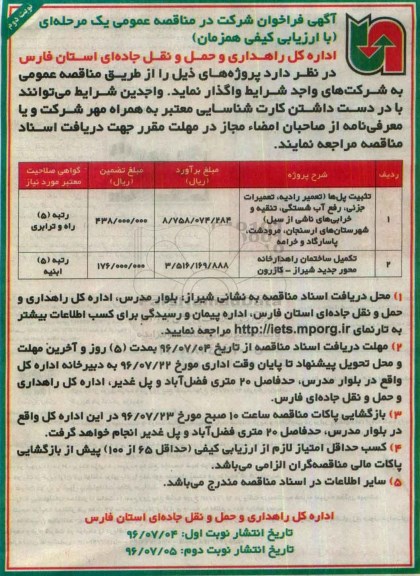 نوبت دوم
آگهی فراخوان شرکت در مناقصه عمومی یک مرحله‌ای
(با ارزیابی کیفی همزمان)
اداره کل راهداری و حمل و نقل جاده‌ای استان فارس
در نظر دارد پروژه‌های ذیل را از طریق مناقصه عمومی
به شرکت‌های واجد شرایط واگذار نماید. واجدین شرایط می‌توانند
با در دست داشتن کارت شناسایی معتبر به همراه مهر شرکت و یا
معرفی‌نامه از صاحبان امضاء مجاز در مهلت مقرر جهت دریافت اسناد
مناقصه مراجعه نمایند.
ردیف	شرح پروژه	مبلغ برآورد (ریال)	مبلغ تضمین (ریال)	گواهی صلاحیت معتبر مورد نیاز
۱	تثبیت پل‌ها (تعمیر رادیه، تعمیرات جزئی، رفع آب شستگی، تنقیه و خرابی‌های ناشی از سیل) شهرستان‌های ارسنجان، مرودشت، پاسارگاد و خرامه	۸/۷۵۸/۰۷۴/۲۸۴	۴۳۸/۰۰۰/۰۰۰	رتبه (۵) راه و ترابری
۲	تکمیل ساختمان راهدارخانه محور جدید شیراز - کازرون	۳/۵۱۶/۱۶۹/۸۸۸	۱۷۶/۰۰۰/۰۰۰	رتبه (۵) ابنیه
۱) محل دریافت اسناد مناقصه به نشانی شیراز: بلوار مدرس، اداره کل راهداری و
حمل و نقل جاده‌ای استان فارس، اداره پیمان و رسیدگی برای کسب اطلاعات بیشتر
به تارنمای http://iets.mporg.ir مراجعه نمایید.
۲) مهلت دریافت اسناد مناقصه از تاریخ ۹۶/۰۷/۰۴ بمدت (۵) روز و آخرین مهلت
و محل تحویل پیشنهاد تا پایان وقت اداری مورخ ۹۶/۰۷/۲۲ به دبیرخانه اداره کل
واقع در بلوار مدرس، حدفاصل ۲۰ متری فضل‌آباد و پل غدیر، اداره کل راهداری
و حمل و نقل جاده‌ای فارس.
۳) بازگشایی پاکات مناقصه ساعت ۱۰ صبح مورخ ۹۶/۰۷/۲۳ در این اداره کل واقع
در بلوار مدرس، حدفاصل ۲۰ متری فضل‌آباد و پل غدیر انجام خواهد گرفت.
۴) کسب حداقل امتیاز لازم از ارزیابی کیفی (حداقل ۶۵ از ۱۰۰) پیش از بازگشایی
پاکات مالی مناقصه‌گران الزامی می‌باشد.
۵) سایر اطلاعات در اسناد مناقصه مندرج می‌باشد.
اداره کل راهداری و حمل و نقل جاده‌ای استان فارس
تاریخ انتشار نوبت اول: ۹۶/۰۷/۰۴
تاریخ انتشار نوبت دوم: ۹۶/۰۷/۰۵